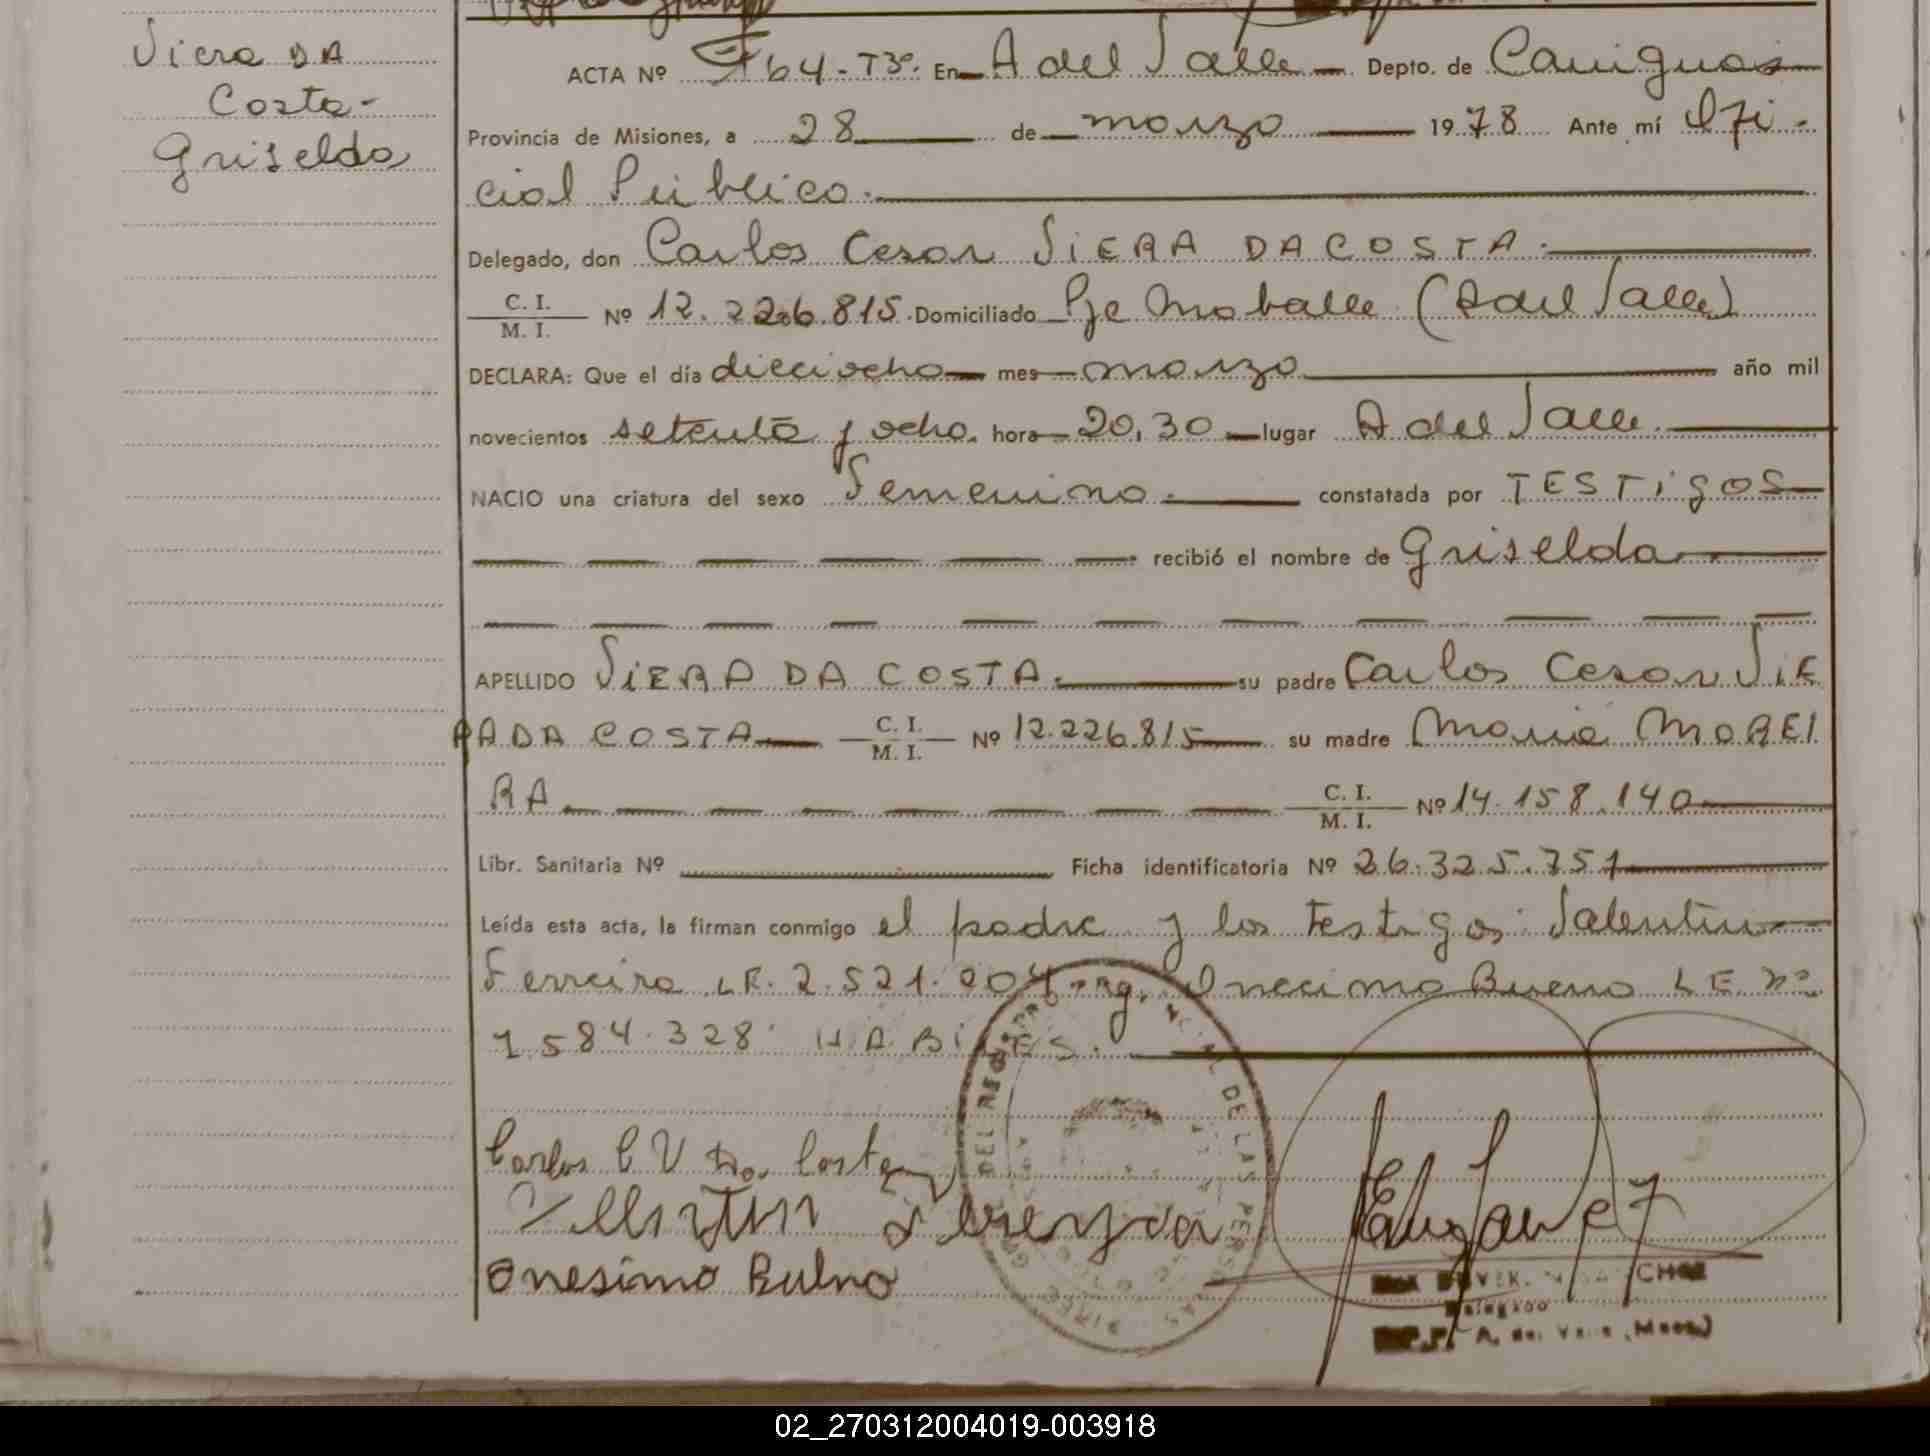 Viera DA
Costa-
Griselda
ACTA Nº 164-T3º. En A del Valle Depto. de Cainguas
Provincia de Misiones, a 28 de marzo 1978 Ante mí Ofi-
cial Público.
Delegado, don Carlos Cesar VIERA DA COSTA.
C. I.
M. I. Nº 12.226.815. Domiciliado Pje (A del Valle)
DECLARA: Que el día dieciocho mes marzo año mil
novecientos setenta y ocho. hora 20,30 lugar A del Valle.
NACIO una criatura del sexo Femenino. constatada por TESTIGOS
recibió el nombre de Griselda
APELLIDO VIERA DA COSTA. su padre Carlos Cesar VIE
RA DA COSTA C. I.
M. I. Nº 12.226.815 su madre Maria MOREI
RA C. I.
M. I. Nº 14.158.140
Libr. Sanitaria Nº Ficha identificatoria Nº 26.325.751
Leída esta acta, la firman conmigo el padre y los Testigos: Valentin
Ferreira LE. 2.521.904 Arg. Onecimo Bueno LE nº
1584.328 HABILES.
Carlos C V Da Costa
Onesimo Bulno
DEL REG. PROVINCIAL DE LAS PERSONAS
Delegado
A. del Valle (Mnes.)
02_270312004019-003918